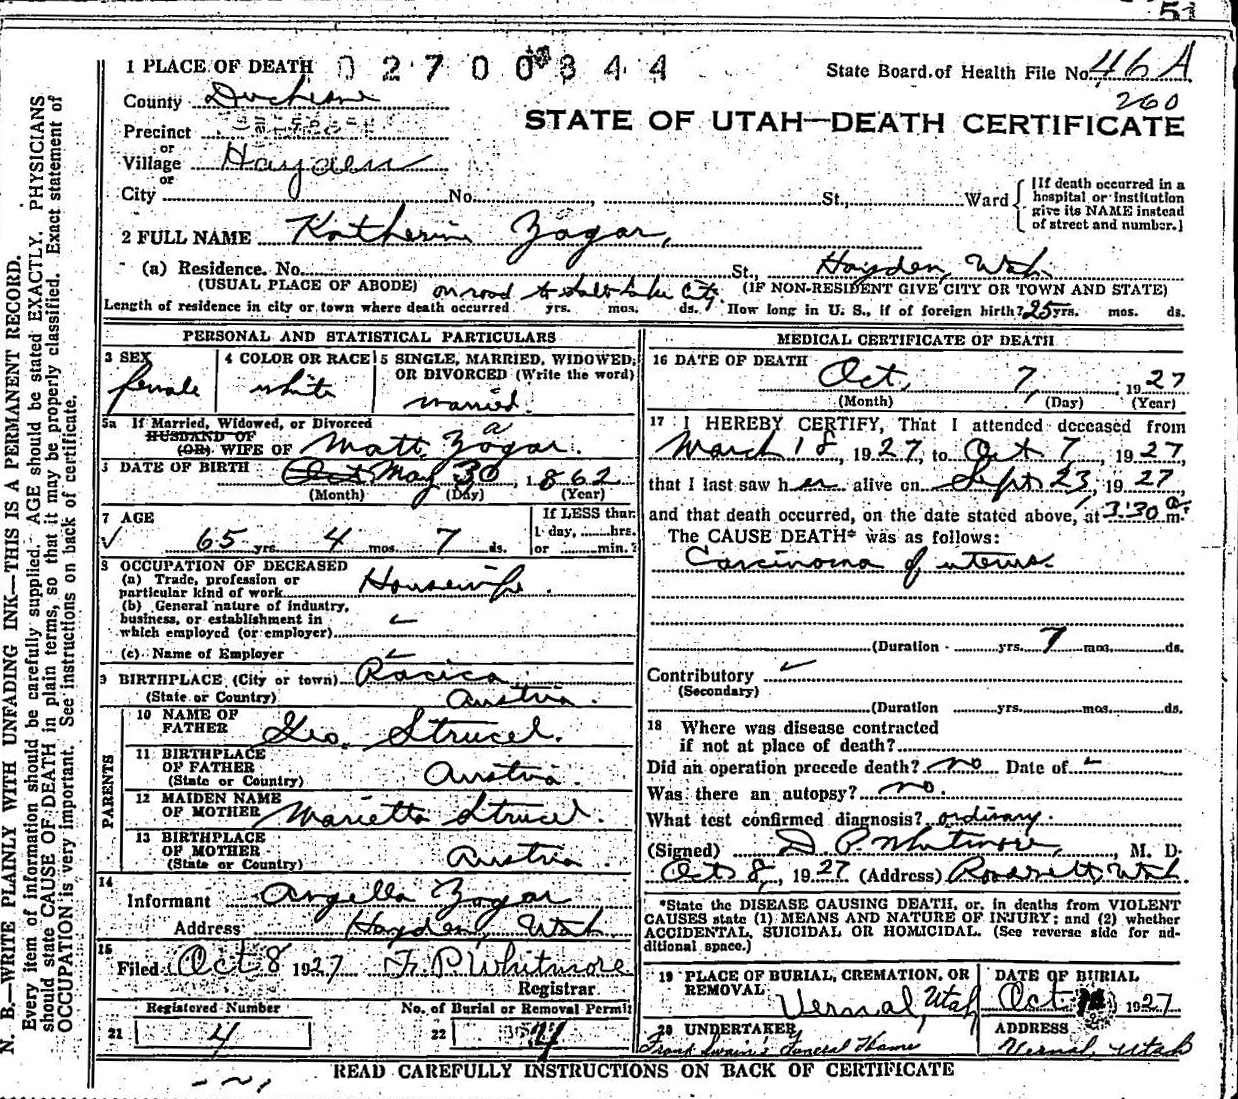 1 PLACE OF DEATH 02700844
State Board of Health File No. 46A
260
County Duchesne
STATE OF UTAH—DEATH CERTIFICATE
Precinct
or
Village Hayden
or
City No. St., Ward
[If death occurred in a hospital or institution give its NAME instead of street and number.]
2 FULL NAME Katherine Zagar,
(a) Residence. No. St., Hayden, Utah
(USUAL PLACE OF ABODE) on road to Salt Lake City (IF NON-RESIDENT GIVE CITY OR TOWN AND STATE)
Length of residence in city or town where death occurred yrs. mos. ds. How long in U. S., if of foreign birth? 25 yrs. mos. ds.
PERSONAL AND STATISTICAL PARTICULARS
3 SEX female
4 COLOR OR RACE white
5 SINGLE, MARRIED, WIDOWED, OR DIVORCED (Write the word) married.
5a If Married, Widowed, or Divorced
HUSBAND OF
(OR) WIFE OF Matt Zagar.
6 DATE OF BIRTH Oct May 30, 1862
(Month) (Day) (Year)
7 AGE
65 yrs. 4 mos. 7 ds.
If LESS than 1 day, hrs. or min.?
8 OCCUPATION OF DECEASED
(a) Trade, profession or particular kind of work Housewife.
(b) General nature of industry, business, or establishment in which employed (or employer)
(c) Name of Employer
9 BIRTHPLACE (City or town) Racica
(State or Country) Austria.
PARENTS
10 NAME OF FATHER Geo. Strucel.
11 BIRTHPLACE OF FATHER (State or Country) Austria.
12 MAIDEN NAME OF MOTHER Marietta Strucel.
13 BIRTHPLACE OF MOTHER (State or Country) Austria.
14
Informant Angella Zagar
Address Hayden, Utah
15
Filed Oct 8 1927 F. P. Whitmore
Registrar.
Registered Number
21 4
No. of Burial or Removal Permit
22 4
MEDICAL CERTIFICATE OF DEATH
16 DATE OF DEATH Oct, 7, 1927
(Month) (Day) (Year)
17 I HEREBY CERTIFY, That I attended deceased from
March 18, 1927, to Oct 7, 1927
that I last saw her alive on Sept 23, 1927,
and that death occurred, on the date stated above, at 3:30 a m.
The CAUSE DEATH* was as follows:
Carcinoma of uterus.
(Duration yrs. 7 mos. ds.
Contributory
(Secondary)
(Duration yrs. mos. ds.
18 Where was disease contracted
if not at place of death?
Did an operation precede death? no Date of
Was there an autopsy? no.
What test confirmed diagnosis? ordinary.
(Signed) D P Whitmore, M. D.
Oct 8, 1927 (Address) Roosevelt, Utah.
*State the DISEASE CAUSING DEATH, or, in deaths from VIOLENT
CAUSES state (1) MEANS AND NATURE OF INJURY; and (2) whether
ACCIDENTAL, SUICIDAL OR HOMICIDAL. (See reverse side for ad-
ditional space.)
19 PLACE OF BURIAL, CREMATION, OR REMOVAL Vernal, Utah
DATE OF BURIAL Oct 1927
20 UNDERTAKER Frank Swain's Funeral Home
ADDRESS Vernal, Utah
READ CAREFULLY INSTRUCTIONS ON BACK OF CERTIFICATE
N. B.—WRITE PLAINLY WITH UNFADING INK—THIS IS A PERMANENT RECORD.
Every item of information should be carefully supplied. AGE should be stated EXACTLY. PHYSICIANS
should state CAUSE OF DEATH in plain terms, so that it may be properly classified. Exact statement of
OCCUPATION is very important. See instructions on back of certificate.